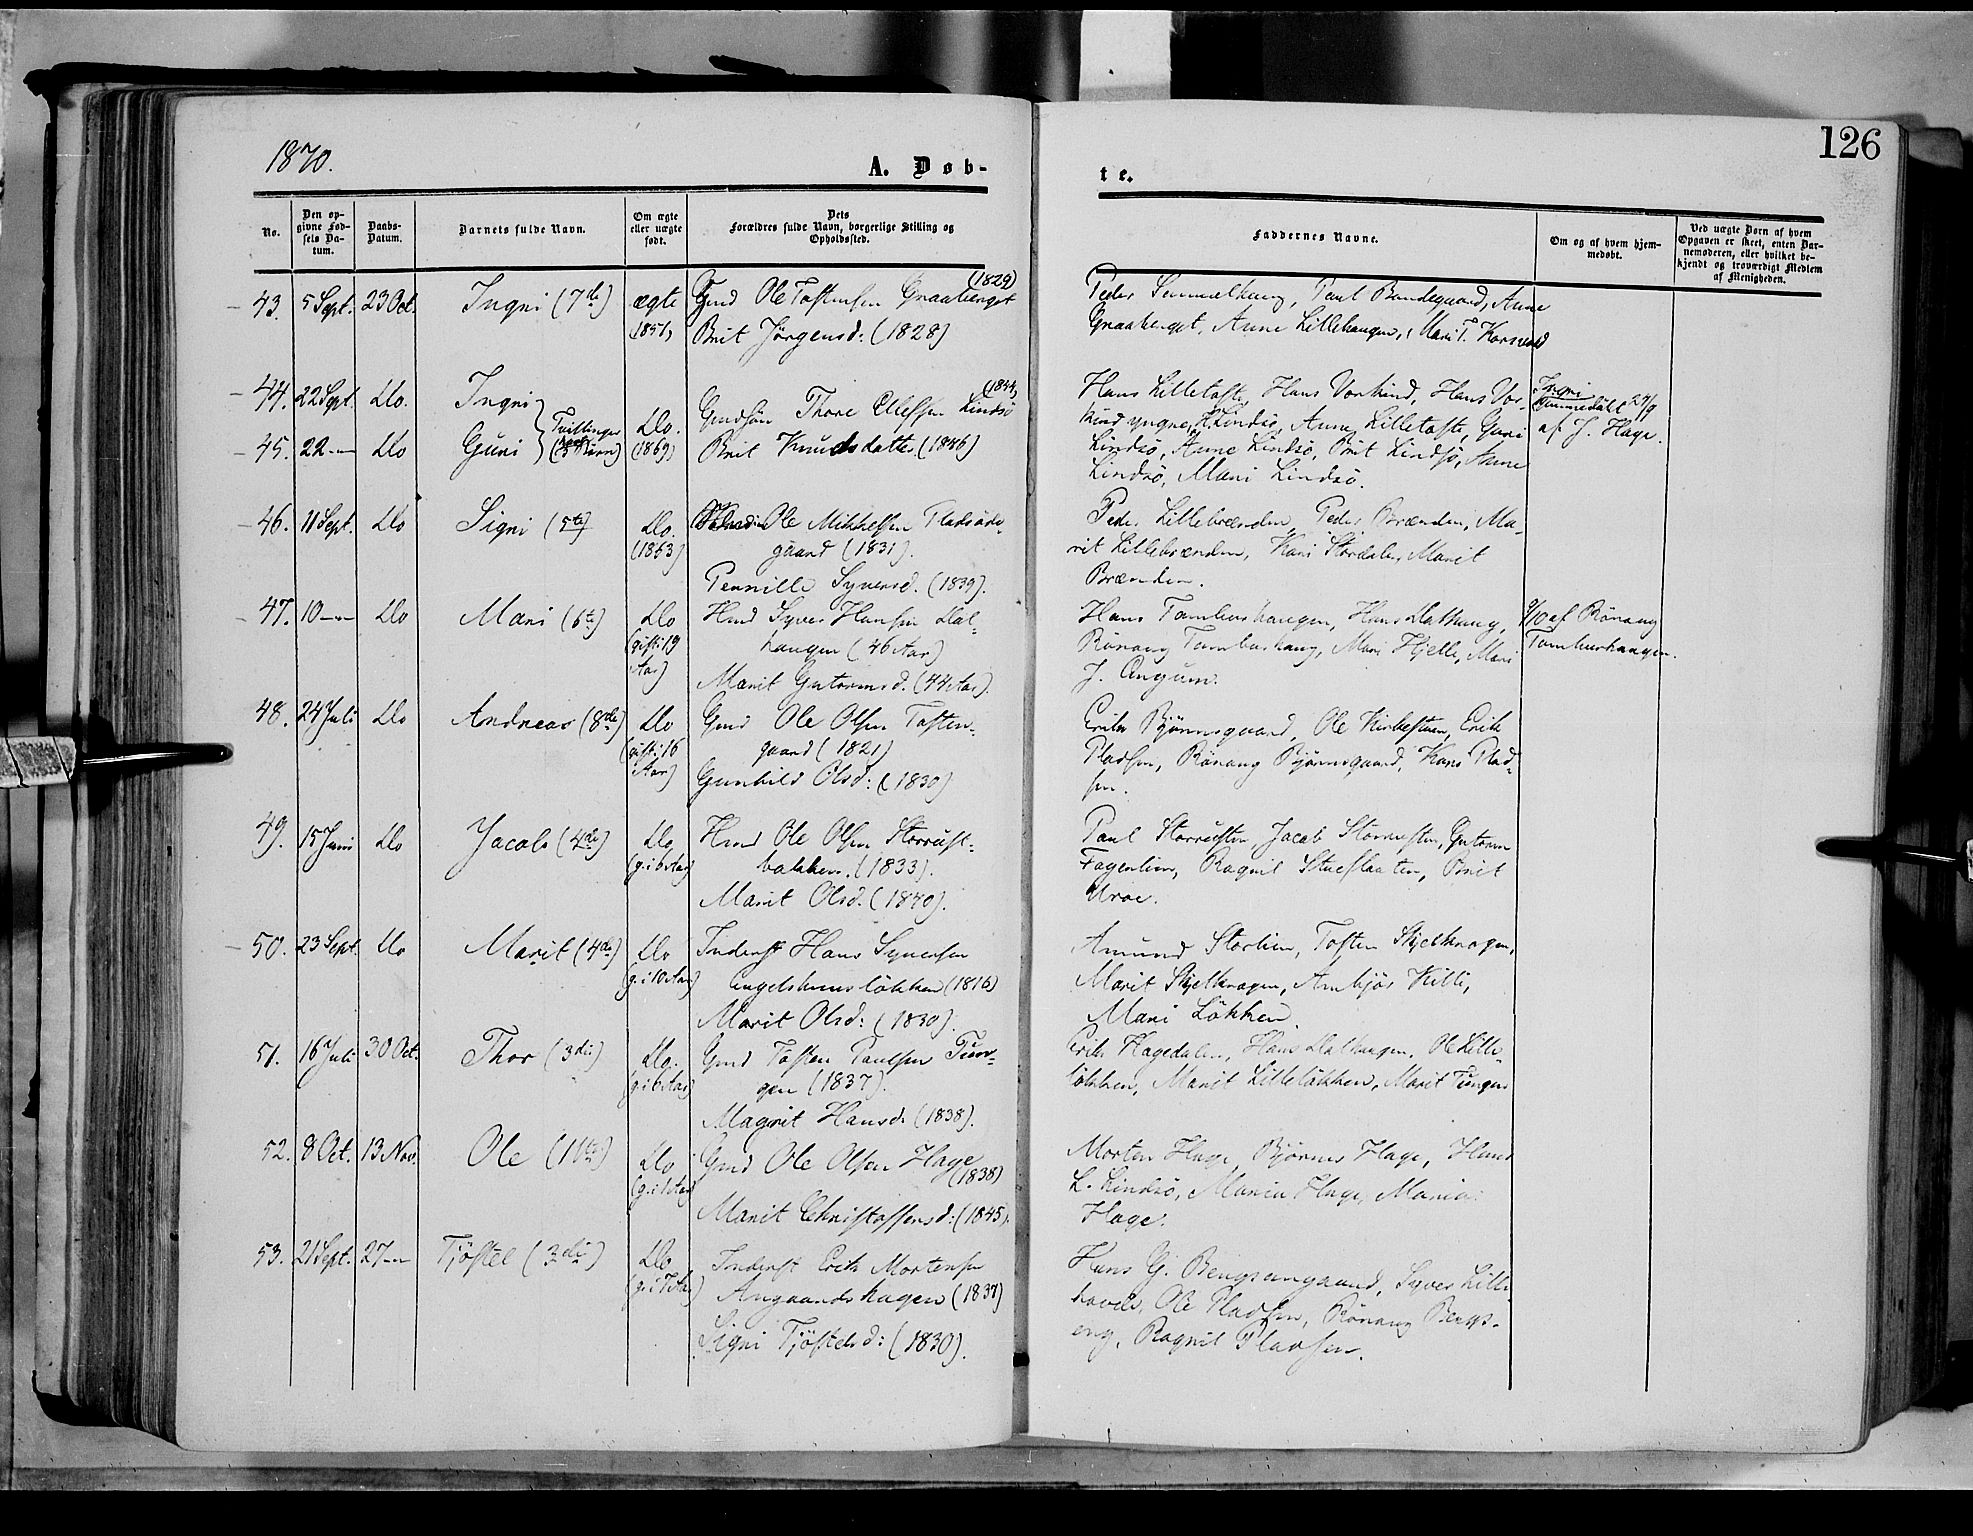 126
1870.
A. Døb-
te.
No.
Den op-
givne Fød-
sels Da-
tum.
Daabs-
Datum.
Barnets fulde Navn.
Om ægte
eller uægte
født.
Dets
Forældres fulde Navn, borgerlige Stilling og
Opholdssted.
Faddernes Navne.
Om og af hvem hjem-
medøbt.
Ved uægte Børn af hvem
Opgaven er skeet, enten Bar-
nemoderen, eller hvilket be-
kjendt og troværdigt Medlem
af Menigheden.
43. 5 Sept. 23 Oct. Ingri (7de) ægte Gmd Ole Tostensen Graaberget (1829)
(1851) Brit Jörgensd: (1828)
Peder Paul Bondegaard, Anne
Graaberget, Anne Lillehaugen, Mari T.
44. 22 Sept. Do. Ingri
Gmdsön Thore Ellefsen Lindsö (1844)
45. 22 — Do Guri Tvillinger Do. (1869) Brit Knudsdatter (1846)
Hans Lilletofte, Hans Vorkind, Hans Vor-
kind yngre, Lindsö, Anne Lilletofte, Guri
Lindsö, Anne Lindsö, Brit Lindsö, Anne
Lindsö, Mari Lindsö.
Ingri
hjemmedöbt 27/9
af J. Hage.
46. 11 Sept. Do Signi (5te) Do. (1863) Ole Mikkelsen Pladsöde-
gaard (1831).
Pernille Syversd. (1839).
Peder Lillebrænden, Peder Brænden, Ma-
rit Lillebrænden, Kari Stordalen, Marit
Brænden.
47. 10 — Do Mari (6te) Do (gift i 19 Aar) Hmd Syver Hansen Dal-
haugen (46 Aar)
Marit Gutormsd. (44 Aar).
Hans Tamburhaugen, Hans Dalhaug,
Rönaug Tamburhaug, Mari Hjelle, Mari
J. Angum.
9/10 af Rönaug
Tamburhaugen.
48. 24 Juli Do Andreas (8de) Do (gift i 16 Aar) Gmd Ole Olsen Tosten-
gaard (1821)
Gunhild Olsd: (1830)
Erik Bjönnsgaard, Ole Kirkestuen, Erik
Pladsen, Rönaug Bjönnsgaard, Kari Plad-
sen.
49. 15 Juni Do Jacob (4de) Do (g. i 6 Aar) Hmd Ole Olsen Storrust-
bakken. (1833).
Marit Olsd. (1840).
Paul Storrusten, Jacob Storrusten, Gutorm
Fagerlien, Ragnil Stueflaaten, Brit
Uroe.
50. 23 Sept. Do Marit (4de) Do (g. i 10 Aar) Inderst Hans Syversen
Angelshuuslökken (1816)
Marit Olsd: (1830).
Amund Storlien, Tosten Skjelkragen,
Marit Skjelkragen, Ambjör Killi,
Mari Lökken
51. 16 Juli 30 Oct. Thor (3die) Do. (g. i 6 Aar) Gmd Tosten Paulsen Tun-
gen (1837).
Magrit Hansd. (1838).
Erik Hagedalen, Hans Dalhaugen, Ole Lille-
lökken, Marit Lillelökken, Marit Tungen
52. 8 Oct. 13 Nov. Ole (1ste) Do (g. i 1 Aar) Gmd Ole Olsen Hage
(1838)
Marit Christoffersd: (1845).
Morten Hage, Björner Hage, Hans
L. Lindsö, Maria Hage, Maria
Hage.
53. 21 Sept. 27 — Tjöstel (3die) Do (g. i 7 Aar) Inderst Erik Mortensen
Angaardshagen (1837)
Signi Tjöstelsd: (1830).
Hans G. Bengsangaard, Syver Lille-
hovde, Ole Pladsen, Rönaug Bengs-
eng, Ragnil Pladsen.